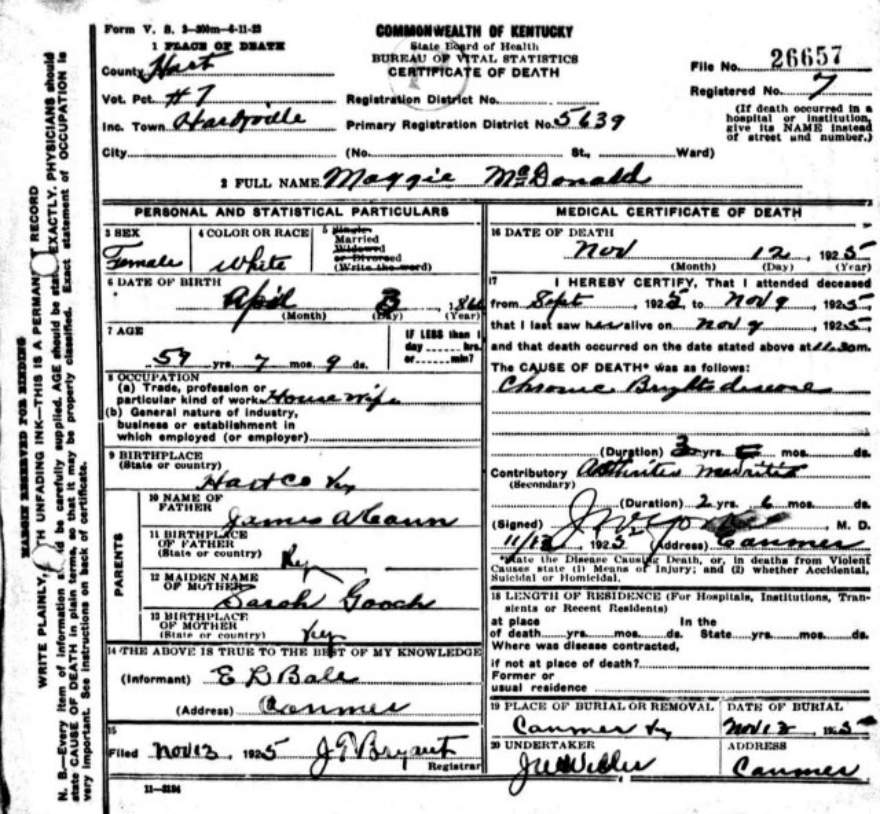 Form V. S. 2-300m-4-11-23
COMMONWEALTH OF KENTUCKY
State Board of Health
BUREAU OF VITAL STATISTICS
CERTIFICATE OF DEATH
File No. 26657
Registered No. 7
(If death occurred in a hospital or institution, give its NAME instead of street and number.)
1 PLACE OF DEATH
County Hart
Vot. Pct. #7
Registration District No.
Inc. Town Hardyville
Primary Registration District No. 5639
City (No. St., Ward)
2 FULL NAME Maggie McDonald
PERSONAL AND STATISTICAL PARTICULARS
3 SEX
Female
4 COLOR OR RACE
White
5 Single
Married
Widowed
or Divorced
(Write the word)
6 DATE OF BIRTH
April 3, 186
(Month) (Day) (Year)
7 AGE
59 yrs. 7 mos. 9 ds.
IF LESS than 1
day hrs.
or min?
8 OCCUPATION
(a) Trade, profession or
particular kind of work House wife
(b) General nature of industry,
business or establishment in
which employed (or employer)
9 BIRTHPLACE
(State or country)
Hart Co Ky
PARENTS
10 NAME OF
FATHER
James A
11 BIRTHPLACE
OF FATHER
(State or country)
Ky
12 MAIDEN NAME
OF MOTHER
Sarah Gooch
13 BIRTHPLACE
OF MOTHER
(State or country)
Ky
14 THE ABOVE IS TRUE TO THE BEST OF MY KNOWLEDGE
(Informant) E D Bale
(Address) Canmer
15
Filed Nov 13, 1925 J T Bryant
Registrar
11-3184
MEDICAL CERTIFICATE OF DEATH
16 DATE OF DEATH
Nov 12, 1925
(Month) (Day) (Year)
17 I HEREBY CERTIFY, That I attended deceased
from Sept, 1925 to Nov 9, 1925
that I last saw her alive on Nov 9, 1925
and that death occurred on the date stated above at m.
The CAUSE OF DEATH* was as follows:
Chronic Brights disease
(Duration) 3 yrs. mos. ds.
Contributory Arthritis
(Secondary)
(Duration) 2 yrs. 6 mos. ds.
(Signed) , M. D.
11/13, 1925 (Address) Canmer
*State the Disease Causing Death, or, in deaths from Violent
Causes state (1) Means of Injury; and (2) whether Accidental,
Suicidal or Homicidal.
18 LENGTH OF RESIDENCE (For Hospitals, Institutions, Tran-
sients or Recent Residents)
at place In the
of death yrs. mos. ds. State yrs. mos. ds.
Where was disease contracted,
if not at place of death?
Former or
usual residence
19 PLACE OF BURIAL OR REMOVAL
Canmer Ky
DATE OF BURIAL
Nov 13, 1925
20 UNDERTAKER
ADDRESS
Canmer
MARGIN RESERVED FOR BINDING
WRITE PLAINLY, UNFADING INK—THIS IS A PERMANENT RECORD
N. B.—Every item of information should be carefully supplied. AGE should be stated EXACTLY. PHYSICIANS should
state CAUSE OF DEATH in plain terms, so that it may be properly classified. Exact statement of OCCUPATION is
very important. See instructions on back of certificate.